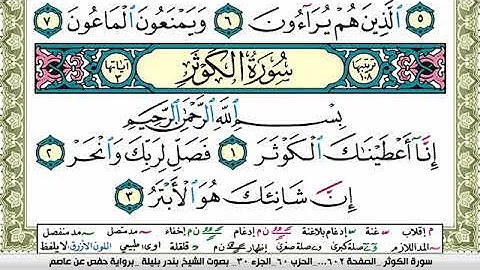 ٥ ٱلَّذِينَ هُمْ يُرَآءُونَ ٦ وَيَمْنَعُونَ ٱلْمَاعُونَ ٧
ترتيبها ١٠٨ سُورَةُ الكَوْثَرِ آياتها ٣
بِسْمِ ٱللَّهِ ٱلرَّحْمَٰنِ ٱلرَّحِيمِ
إِنَّآ أَعْطَيْنَٰكَ ٱلْكَوْثَرَ ١ فَصَلِّ لِرَبِّكَ وَٱنْحَرْ ٢
إِنَّ شَانِئَكَ هُوَ ٱلْأَبْتَرُ ٣
م إقلاب س غنة إدغام بلاغنة ن إدغام ن إخفاء مد متصل مد منفصل
المد اللازم صلة كبرى صلة صغرى إظهار ن م قلقلة اوى: طبيعي اللون الأزرق: لا يلفظ
سورة الكوثر _الصفحة ٦٠٢... _الحزب ٦٠ _الجزء ٣٠_ بصوت الشيخ بندر بليلة _برواية حفص عن عاصم